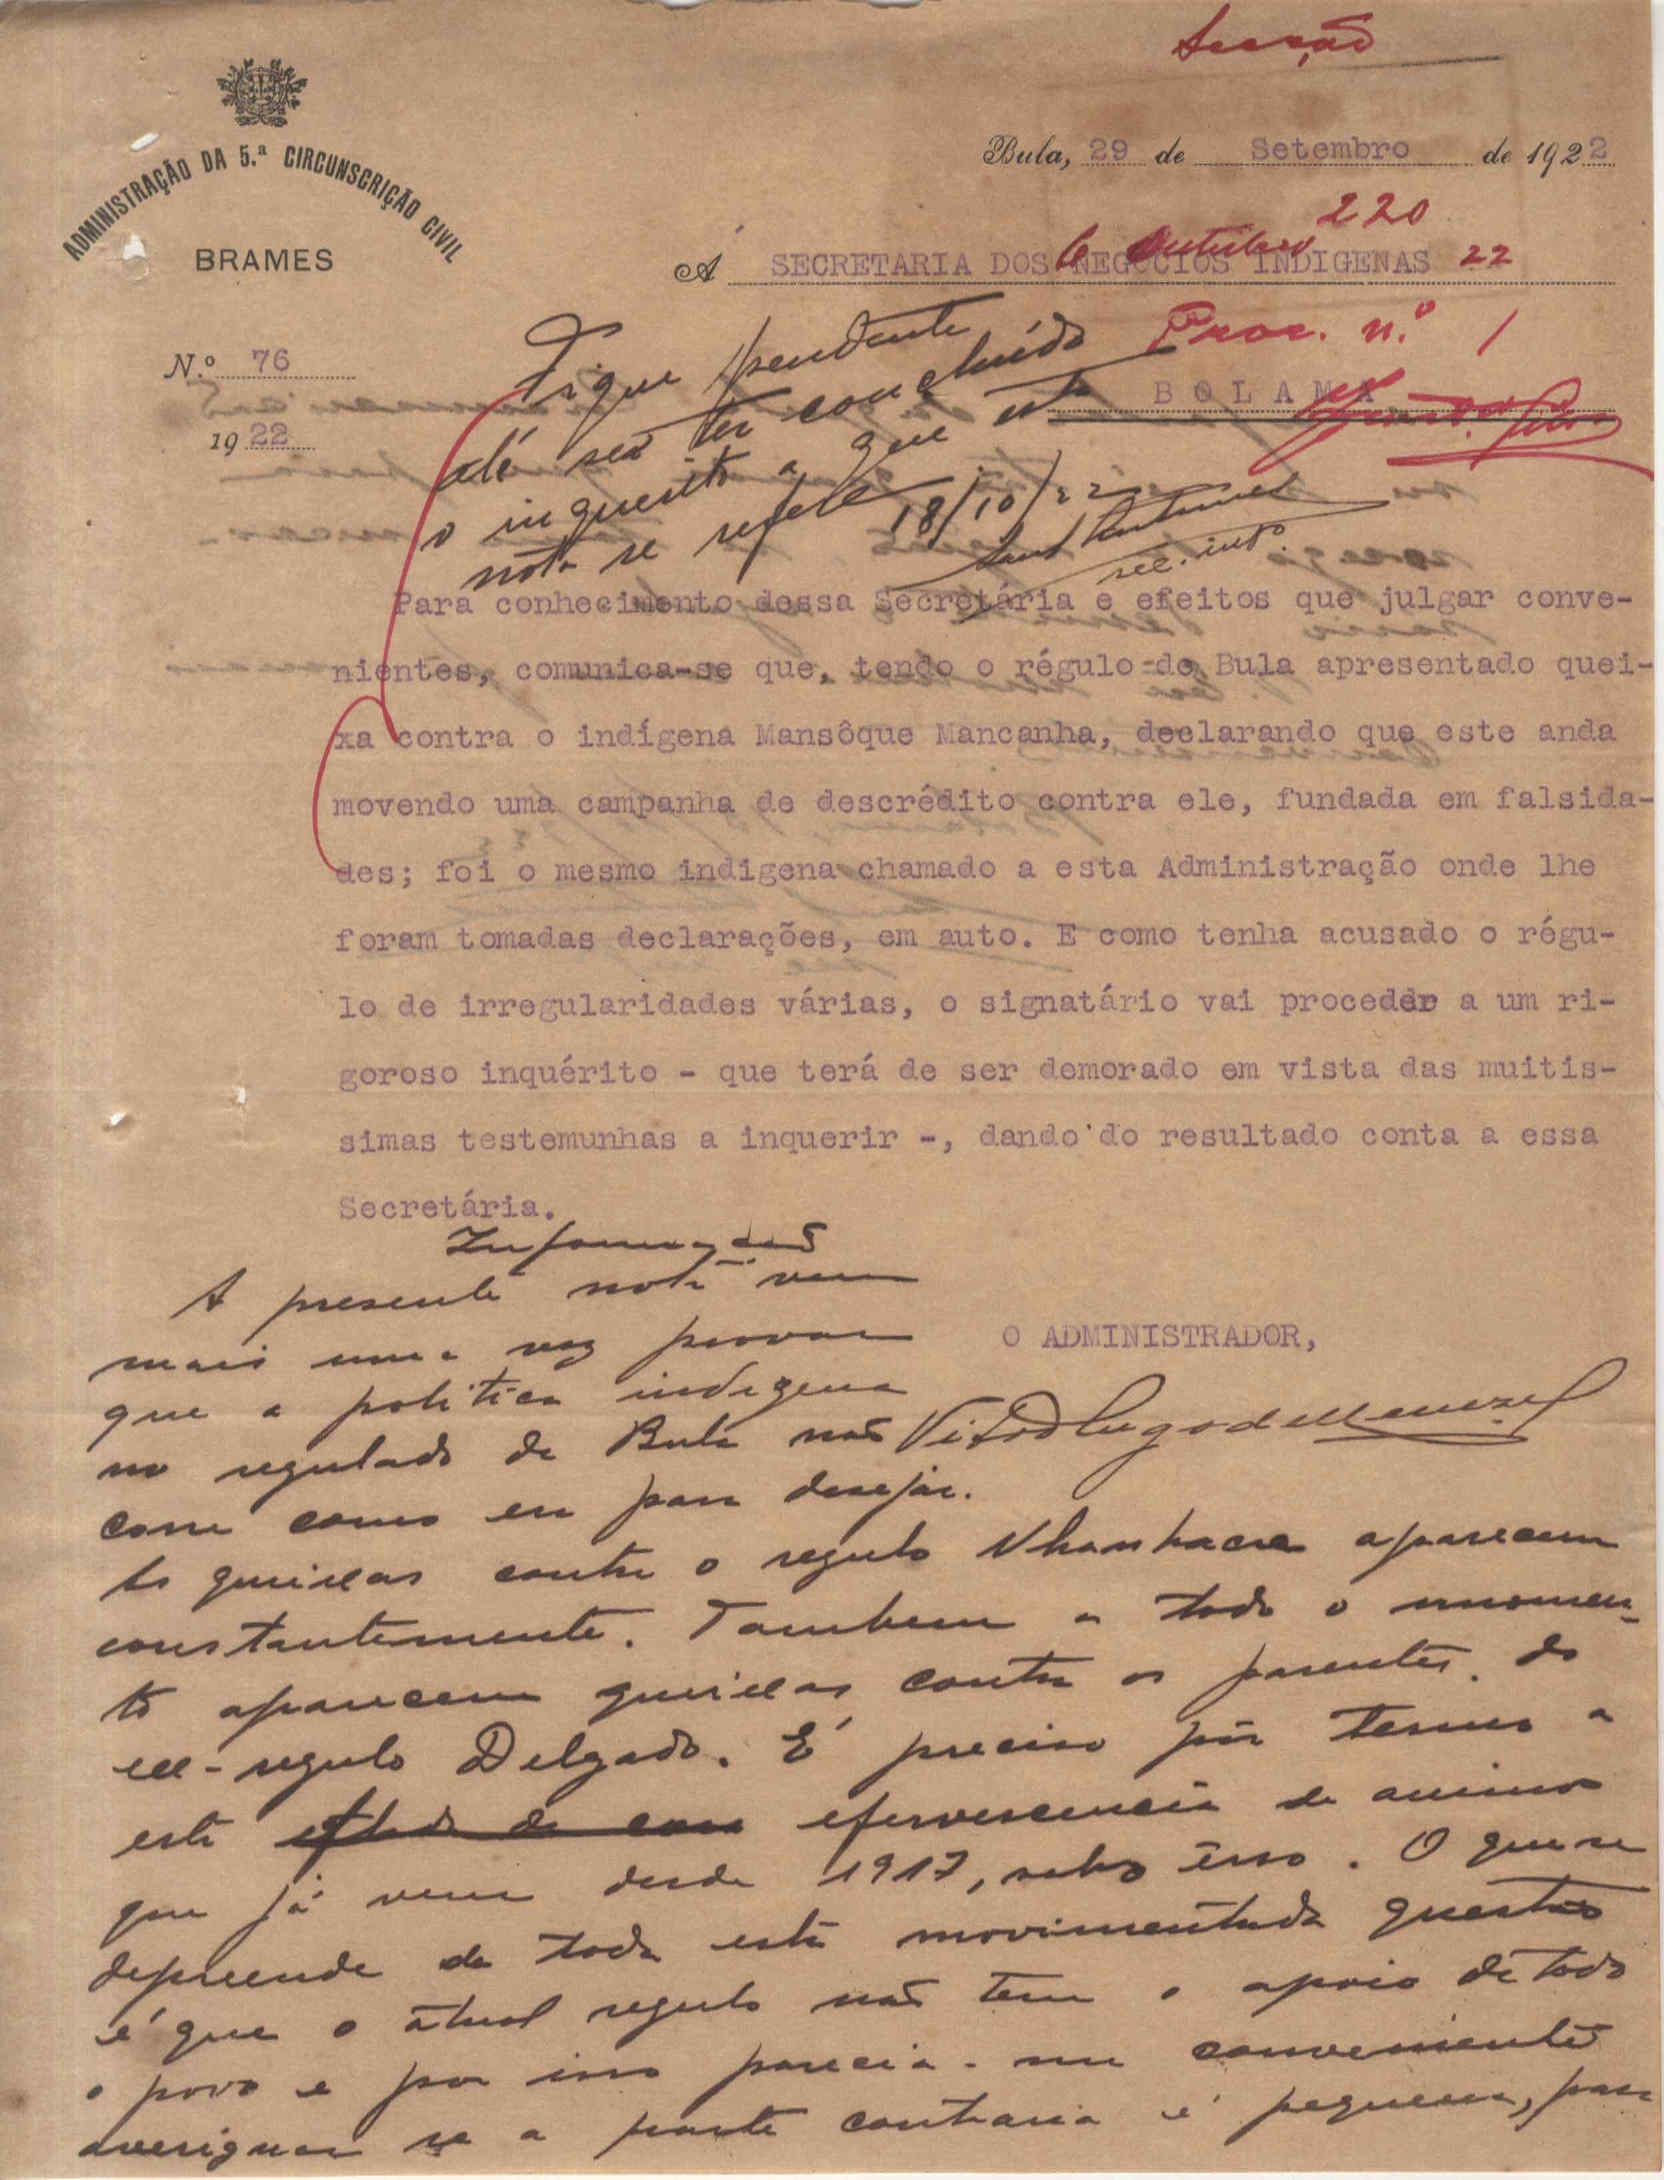 Secção
ADMINISTRAÇÃO DA 5.ª CIRCUNSCRIÇÃO CIVIL
BRAMES
Bula, 29 de Setembro de 1922
220
6 Outubro 22
Á SECRETARIA DOS NEGOCIOS INDIGENAS
Proc. n.º 1
BOLAMA
N.º 76
1922
Fique pendente
até ser concluído
o inquerito a que esta
nota se refere
18/10/22
sec. intº.
Para conhecimento dessa Secretária e efeitos que julgar conve-
nientes, comunica-se que, tendo o régulo de Bula apresentado quei-
xa contra o indígena Mansôque Mancanha, declarando que este anda
movendo uma campanha de descrédito contra ele, fundada em falsida-
des; foi o mesmo indigena chamado a esta Administração onde lhe
foram tomadas declarações, em auto. E como tenha acusado o régu-
lo de irregularidades várias, o signatário vai proceder a um ri-
goroso inquérito - que terá de ser demorado em vista das muitis-
simas testemunhas a inquerir -, dando do resultado conta a essa
Secretária.
O ADMINISTRADOR,
Informação
A presente nota vem
mais uma vez provar
que a politica indigena
no regulado de Bula não
corre como era para desejar.
As queixas contra o regulo aparecem
constantemente. Tambem a todo o momen-
to aparecem queixas contra os parentes do
ex-regulo Delgado. É preciso pôr termo a
esta efervescencia de animos
que já vem desde 1917, salvo êrro. O que se
depreende de toda esta movimentada questão
é que o átual regulo não tem o apoio de todo
o povo e por isso parecia-me conveniente
averiguar se a parte contraria é pequena, para